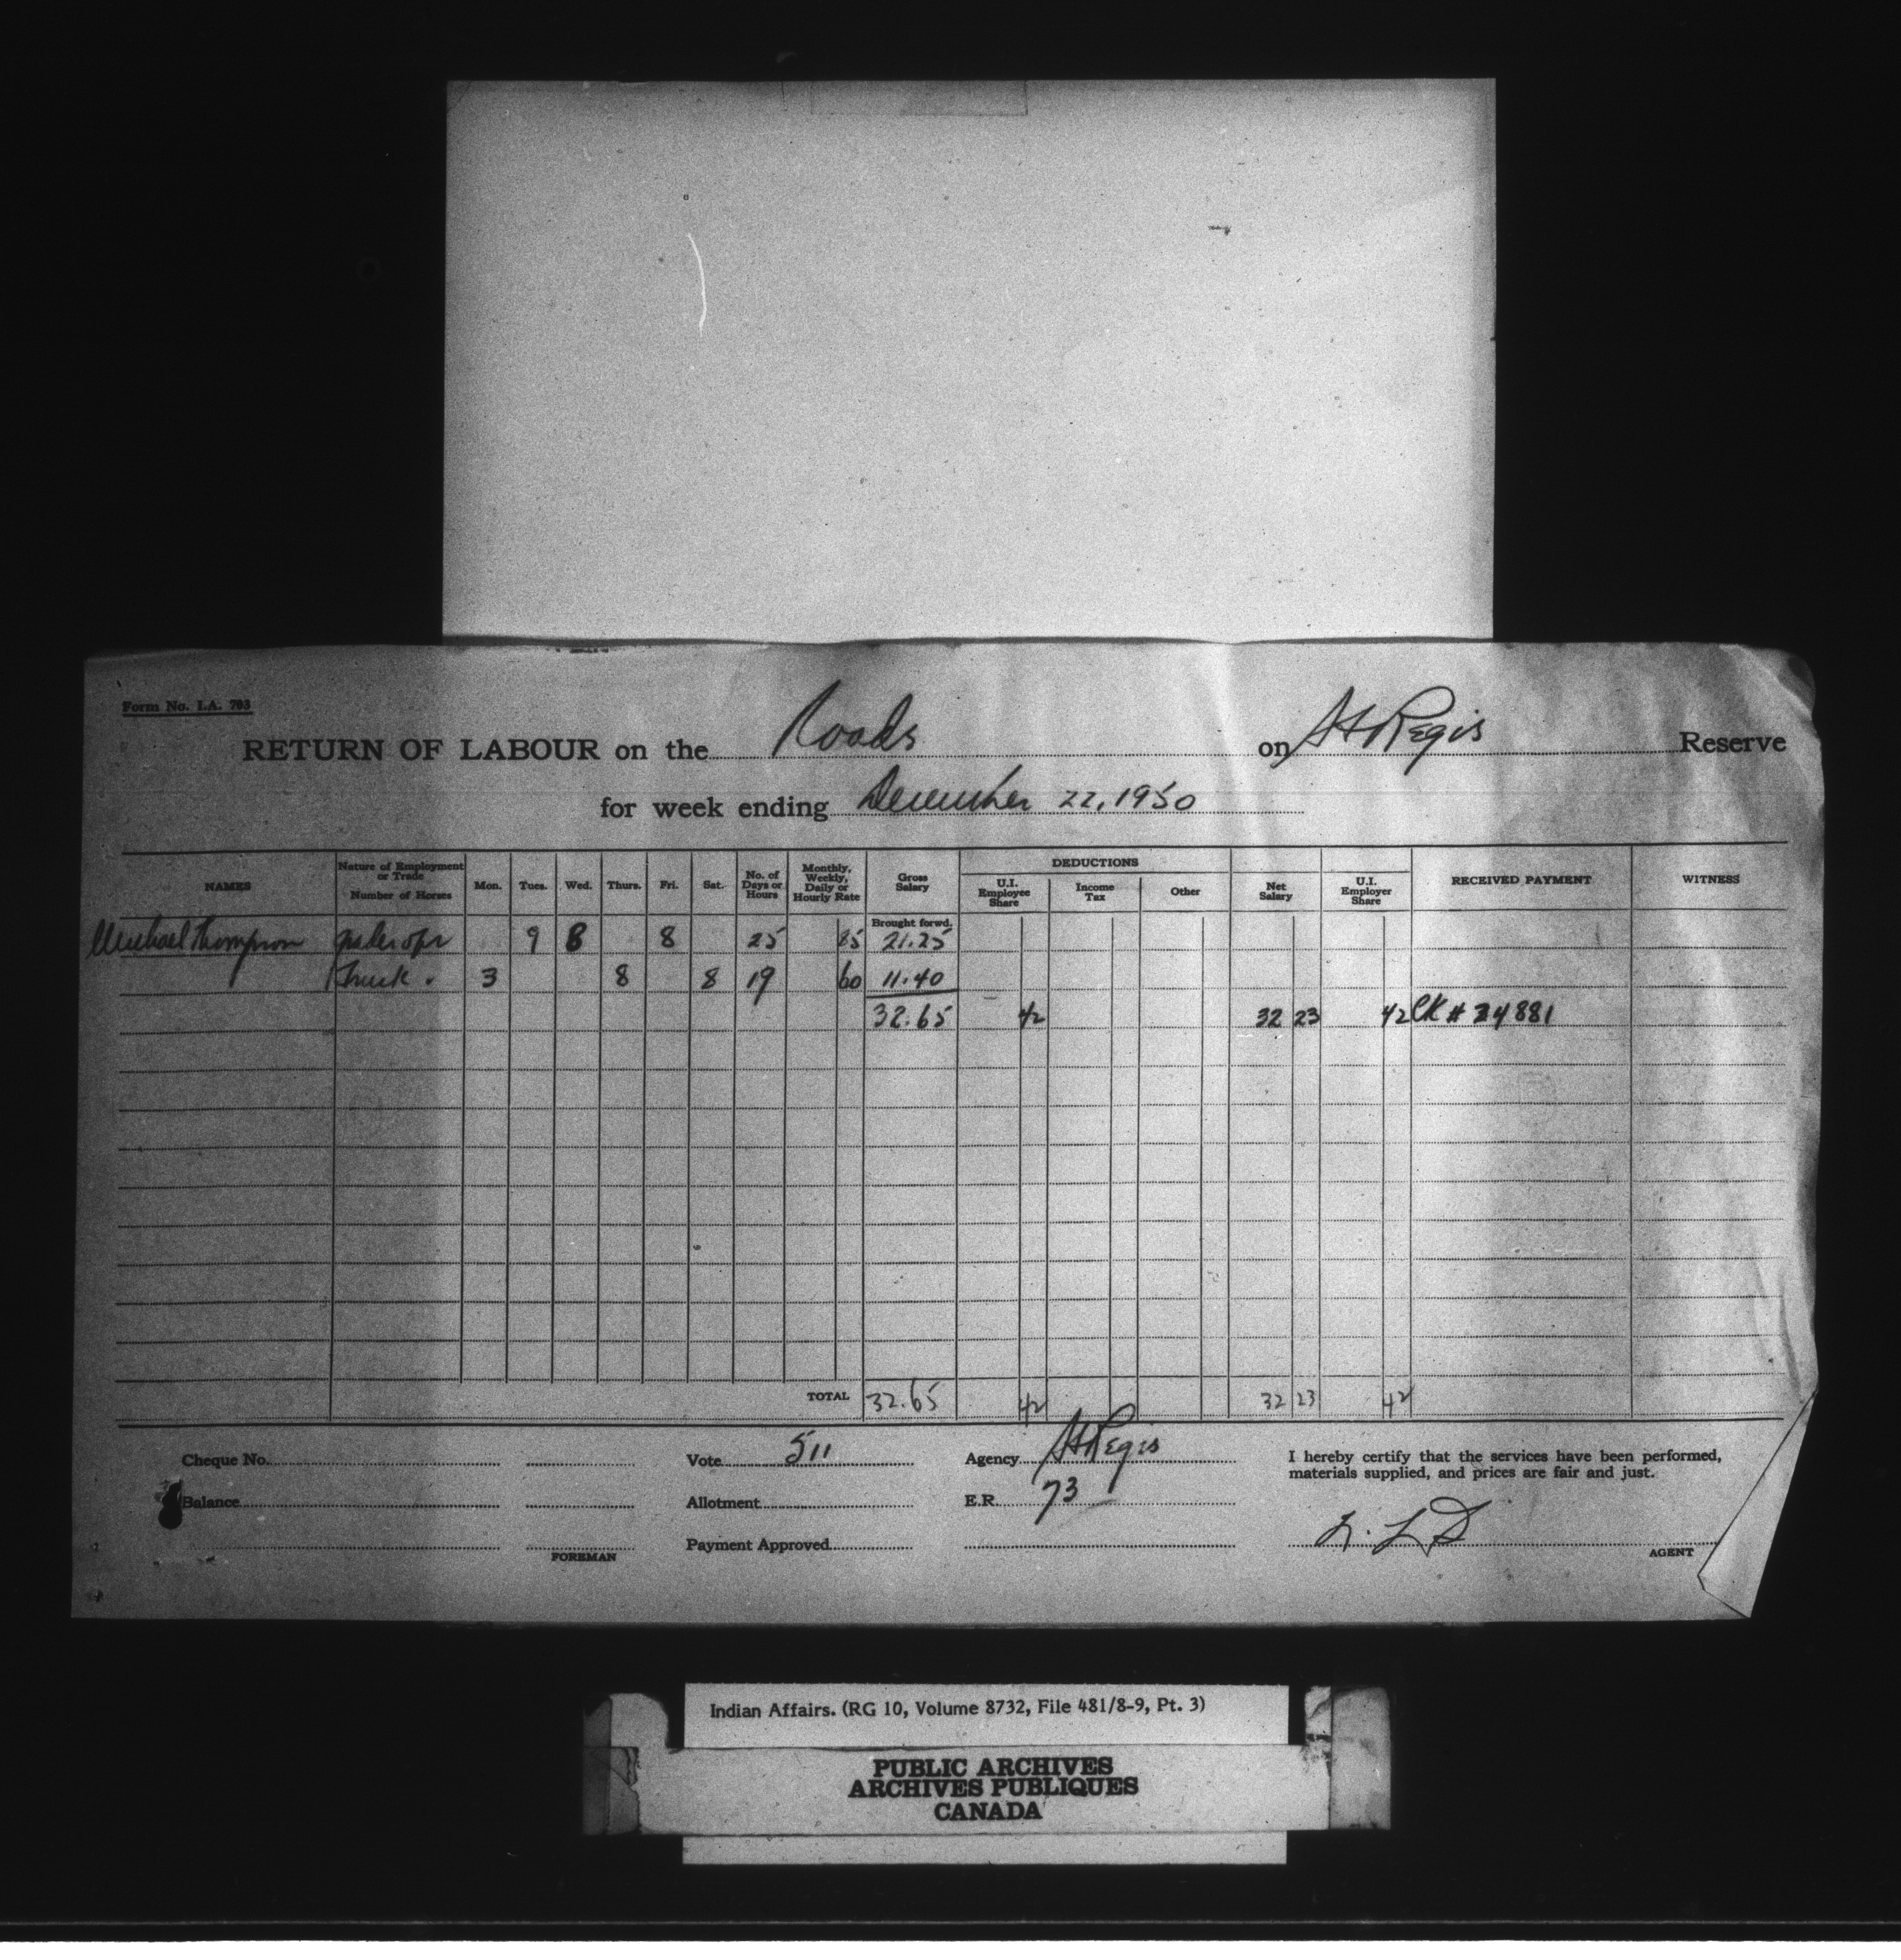 Form No. I.A. 703
RETURN OF LABOUR on the Roads on St Regis Reserve
for week ending December 22, 1950
NAMES Nature of Employment or Trade Number of Horses Mon. Tues. Wed. Thurs. Fri. Sat. No. of Days or Hours Monthly, Weekly, Daily or Hourly Rate Gross Salary DEDUCTIONS U.I. Employee Share Income Tax Other Net Salary U.I. Employer Share RECEIVED PAYMENT WITNESS
Brought forwd.
Michael Thompson grader opr 9 8 8 25 85 21.25
Truck. 3 8 8 19 60 11.40
32.65 42 32 23 42 CK # 24881
TOTAL 32.65 42 32 23 42
Cheque No. Vote 511 Agency St Regis I hereby certify that the services have been performed,
materials supplied, and prices are fair and just.
Balance Allotment E.R. 73
Payment Approved
FOREMAN AGENT
Indian Affairs. (RG 10, Volume 8732, File 481/8-9, Pt. 3)
PUBLIC ARCHIVES
ARCHIVES PUBLIQUES
CANADA